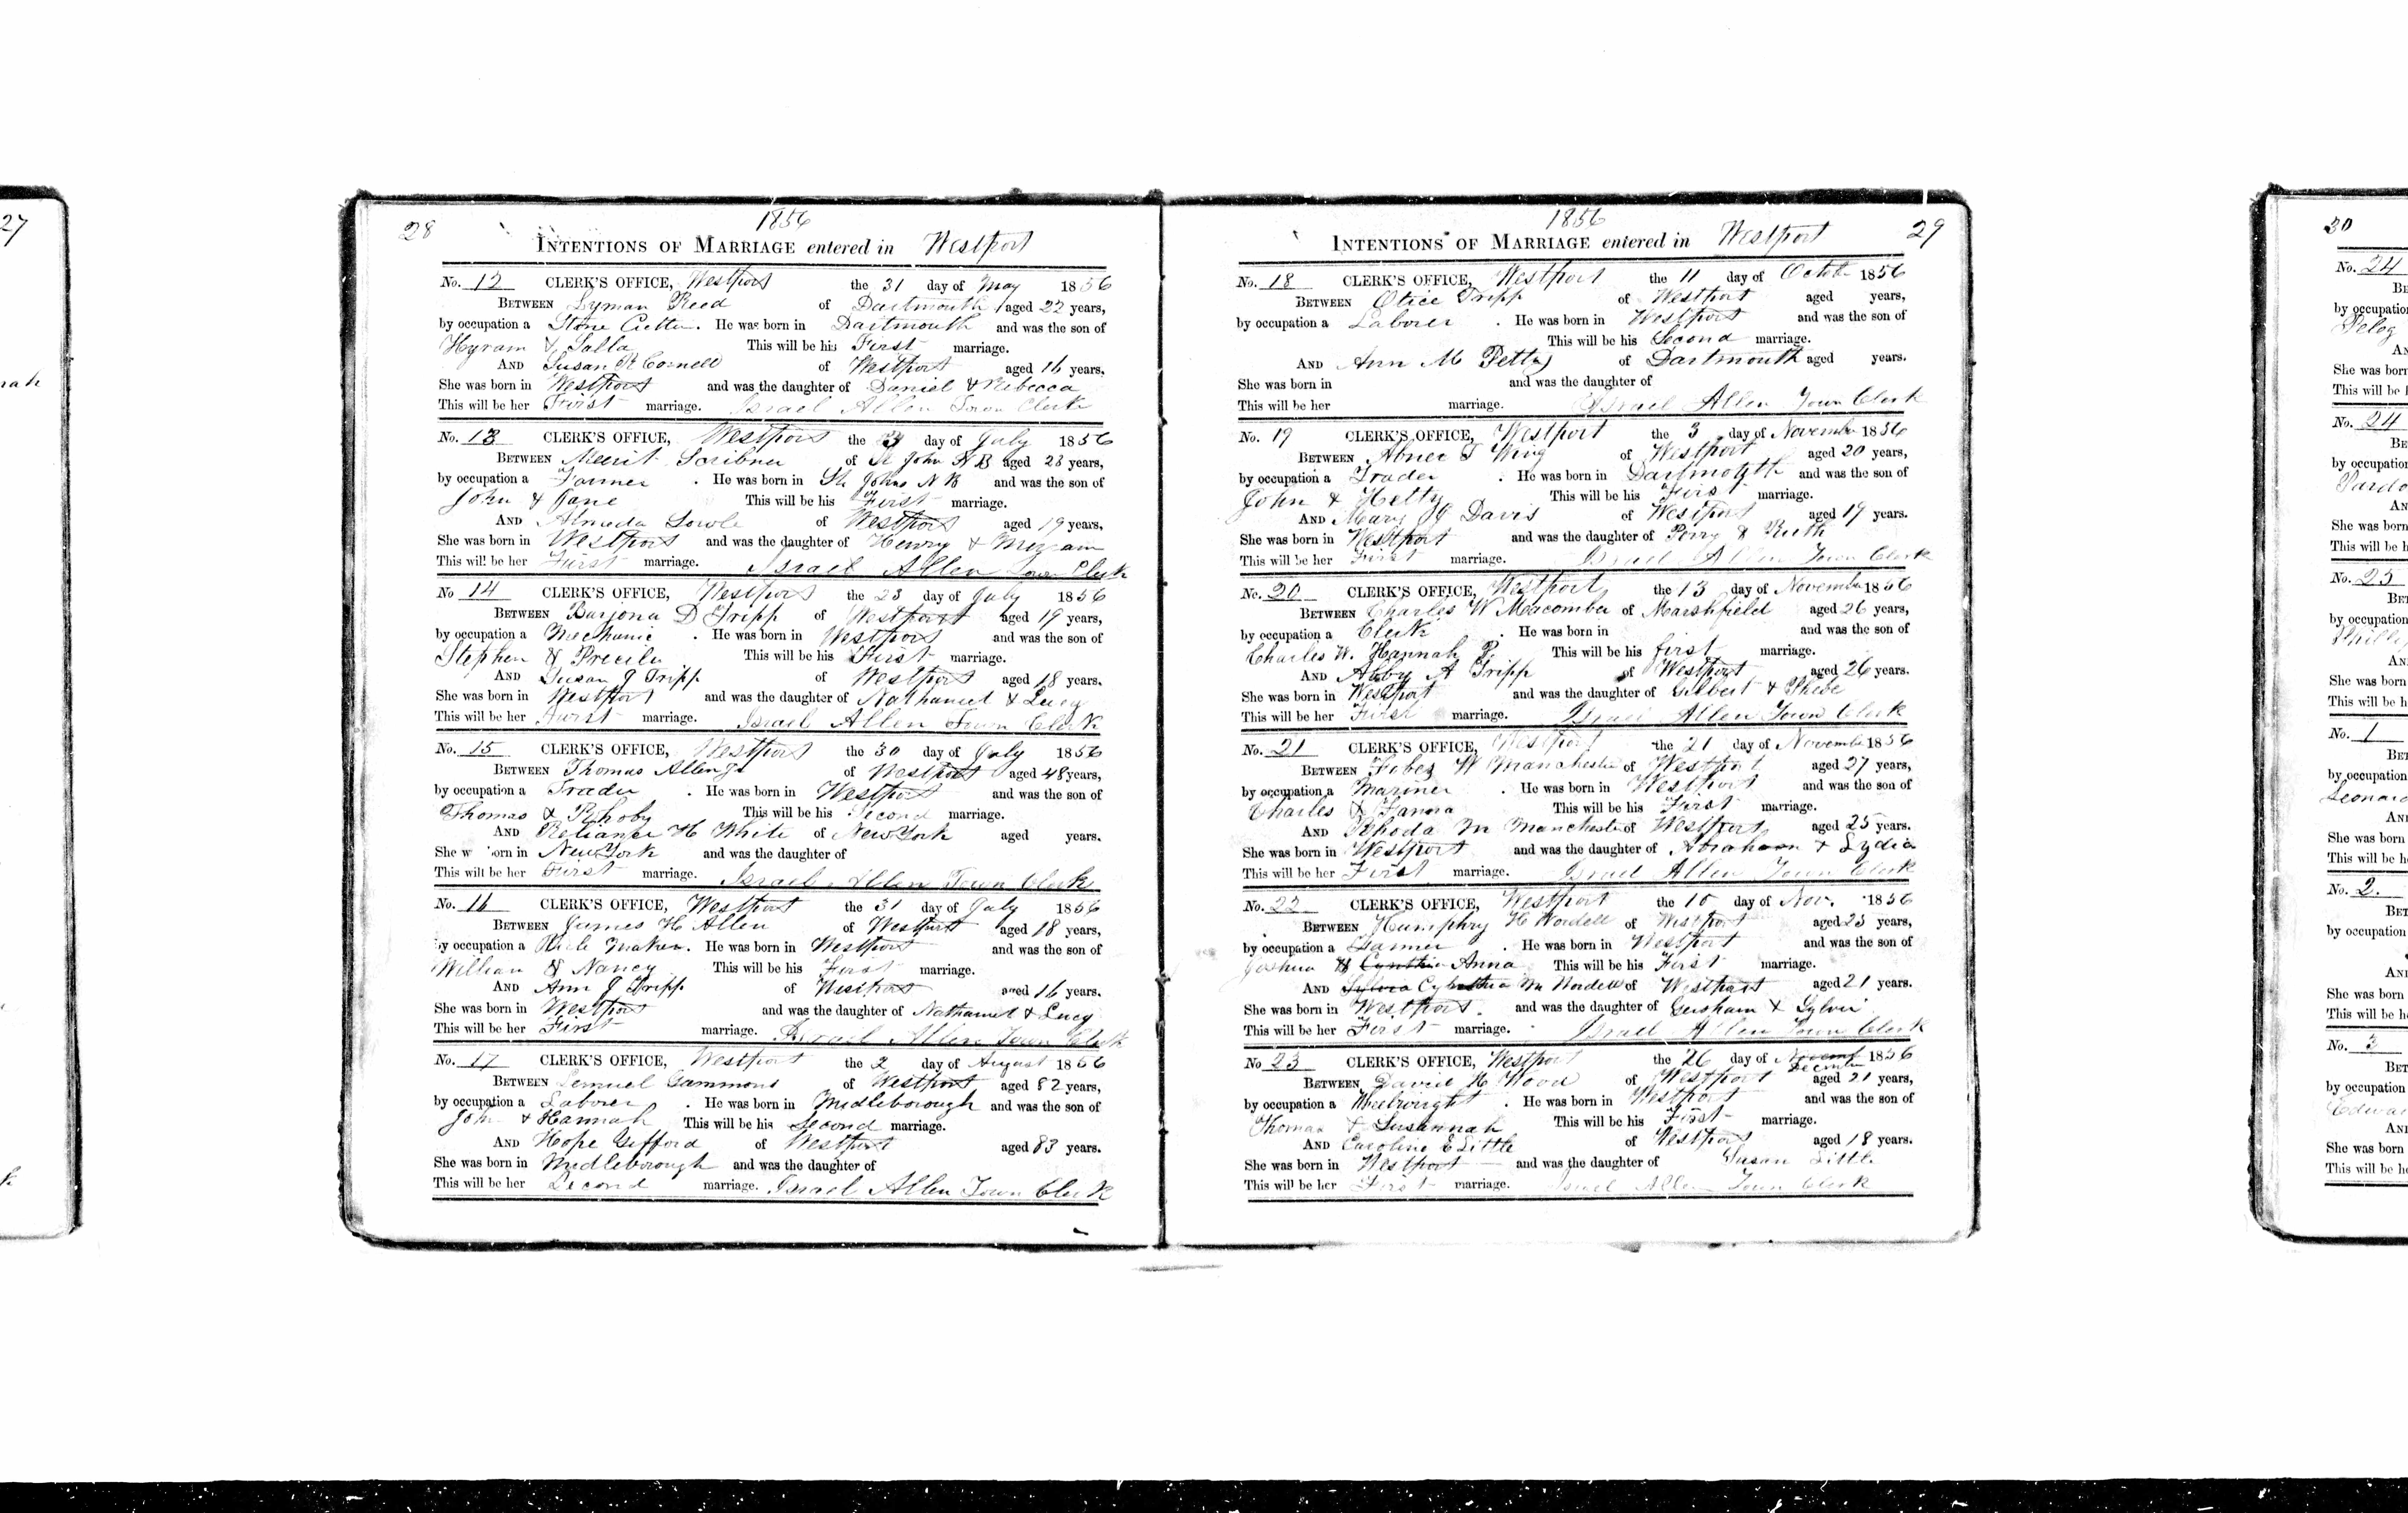 27
nah
k
28
1856
INTENTIONS OF MARRIAGE entered in Westport
No. 12 CLERK'S OFFICE, Westport the 31 day of May 1856
BETWEEN Lyman Reed of Dartmouth aged 22 years,
by occupation a Stone Cutter. He was born in Dartmouth and was the son of
Hyram & Salla This will be his First marriage.
AND Susan A Cornell of Westport aged 16 years.
She was born in Westport and was the daughter of Daniel & Rebecca
This will be her First marriage. Israel Allen Town Clerk
No. 13 CLERK'S OFFICE, Westport the 3 day of July 1856
BETWEEN Merrit Scribner of St John N B aged 23 years,
by occupation a Farmer. He was born in St. Johns N B and was the son of
John & Jane This will be his First marriage.
AND Almeda Sowle of Westport aged 19 years,
She was born in Westport and was the daughter of Henry & Meriam
This will be her First marriage. Israel Allen Town Clerk
No 14 CLERK'S OFFICE, Westport the 23 day of July 1856
BETWEEN Barjona D Tripp of Westport aged 19 years,
by occupation a Mechanic. He was born in Westport and was the son of
Stephen & Precila This will be his First marriage.
AND Susan J Tripp of Westport aged 18 years.
She was born in Westport and was the daughter of Nathaniel & Lucy
This will be her First marriage. Israel Allen Town Clerk
No. 15 CLERK'S OFFICE, Westport the 30 day of July 1856
BETWEEN Thomas Allen Jr of Westport aged 48 years,
by occupation a Trader. He was born in Westport and was the son of
Thomas & Rhoby This will be his Second marriage.
AND Reliance H White of New York aged years.
She w orn in New York and was the daughter of
This will be her First marriage. Israel Allen Town Clerk
No. 16 CLERK'S OFFICE, Westport the 31 day of July 1856
BETWEEN James H Allen of Westport aged 18 years,
by occupation a maker. He was born in Westport and was the son of
William & Nancy This will be his First marriage.
AND Ann J Tripp of Westport aged 16 years.
She was born in Westport and was the daughter of Nathaniel & Lucy
This will be her First marriage. Israel Allen Town Clerk
No. 17 CLERK'S OFFICE, Westport the 2 day of August 1856
BETWEEN Lemuel Sammons of Westport aged 82 years,
by occupation a Laborer. He was born in Middleborough and was the son of
John & Hannah This will be his Second marriage.
AND Hope Gifford of Westport aged 83 years.
She was born in Middleborough and was the daughter of
This will be her Second marriage. Israel Allen Town Clerk
1856 29
INTENTIONS OF MARRIAGE entered in Westport
No. 18 CLERK'S OFFICE, Westport the 11 day of Octob 1856
BETWEEN Otice Tripp of Westport aged years,
by occupation a Laborer. He was born in Westport and was the son of
This will be his Second marriage.
AND Ann M Petty of Dartmouth aged years.
She was born in and was the daughter of
This will be her marriage. Israel Allen Town Clerk
No. 19 CLERK'S OFFICE, Westport the 3 day of November 1856
BETWEEN Abner T Wing of Westport aged 20 years,
by occupation a Trader. He was born in Dartmouth and was the son of
John & Hetty This will be his First marriage.
AND Mary J Davis of Westport aged 19 years.
She was born in Westport and was the daughter of Perry & Ruth
This will be her First marriage. Israel Allen Town Clerk
No. 20 CLERK'S OFFICE, Westport, the 13 day of November 1856
BETWEEN Charles W Macomber of Marshfield aged 26 years,
by occupation a Clerk. He was born in and was the son of
Charles W. Hannah P. This will be his first marriage.
AND Abby A Tripp of Westport aged 26 years.
She was born in Westport and was the daughter of Gilbert & Phebe
This will be her First marriage. Israel Allen Town Clerk
No. 21 CLERK'S OFFICE, Westport the 21 day of November 1856
BETWEEN Fobez W Manchester of Westport aged 27 years,
by occupation a Mariner. He was born in Westport and was the son of
Charles & This will be his First marriage.
AND Rhoda M Manchester of Westport aged 25 years.
She was born in Westport and was the daughter of Abraham & Lydia
This will be her First marriage. Israel Allen Town Clerk
No. 22 CLERK'S OFFICE, Westport the 10 day of Nov. 1856
BETWEEN Humphry H Wordell of Westport aged 23 years,
by occupation a Farmer. He was born in Westport and was the son of
Joshua & Cynthia Anna This will be his First marriage.
AND Sylvia Cynthia M Wordell of Westport aged 21 years.
She was born in Westport. and was the daughter of Gersham & Sylvia
This will be her First marriage. Israel Allen Town Clerk
No 23 CLERK'S OFFICE, Westport the 26 day of Novemb December 1856
BETWEEN David H Wood of Westport aged 21 years,
by occupation a Wheelwright. He was born in Westport and was the son of
Thomas & Susannah This will be his First marriage.
AND Caroline E Little of Westport aged 18 years.
She was born in Westport and was the daughter of Susan Little
This will be her First marriage. Israel Allen Town Clerk
30
No. 24
BE
by occupation
Peleg
AN
She was born
This will be h
No. 24
BE
by occupation
Pardo
AN
She was born
This will be h
No. 25
BET
by occupation
Phillip
AN
She was born
This will be h
No. 1
BET
by occupation
Leonard
AN
She was born
This will be h
No. 2.
BET
by occupation
AN
She was born
This will be h
No. 3
BET
by occupation
Edwar
AN
She was born
This will be h